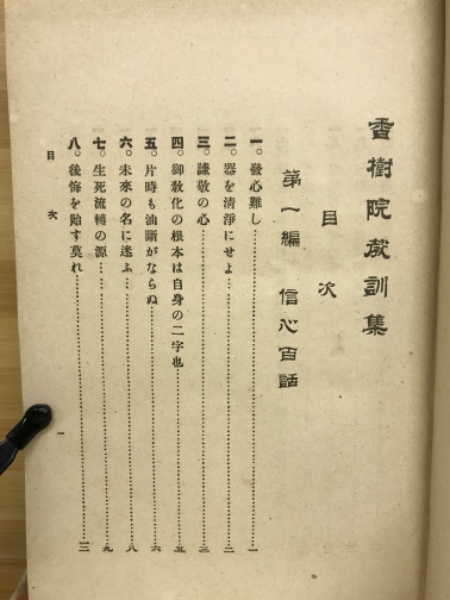 香樹院教訓集
目次
第一編 信心百話
一。發心難し………一
二。器を清淨にせよ………二
三。謙敬の心………三
四。御敎化の根本は自身の二字也………五
五。片時も油斷がならぬ………六
六。未來の名に迷ふ………八
七。生死流轉の源………九
八。後悔を貽す莫れ………一二
目次
一